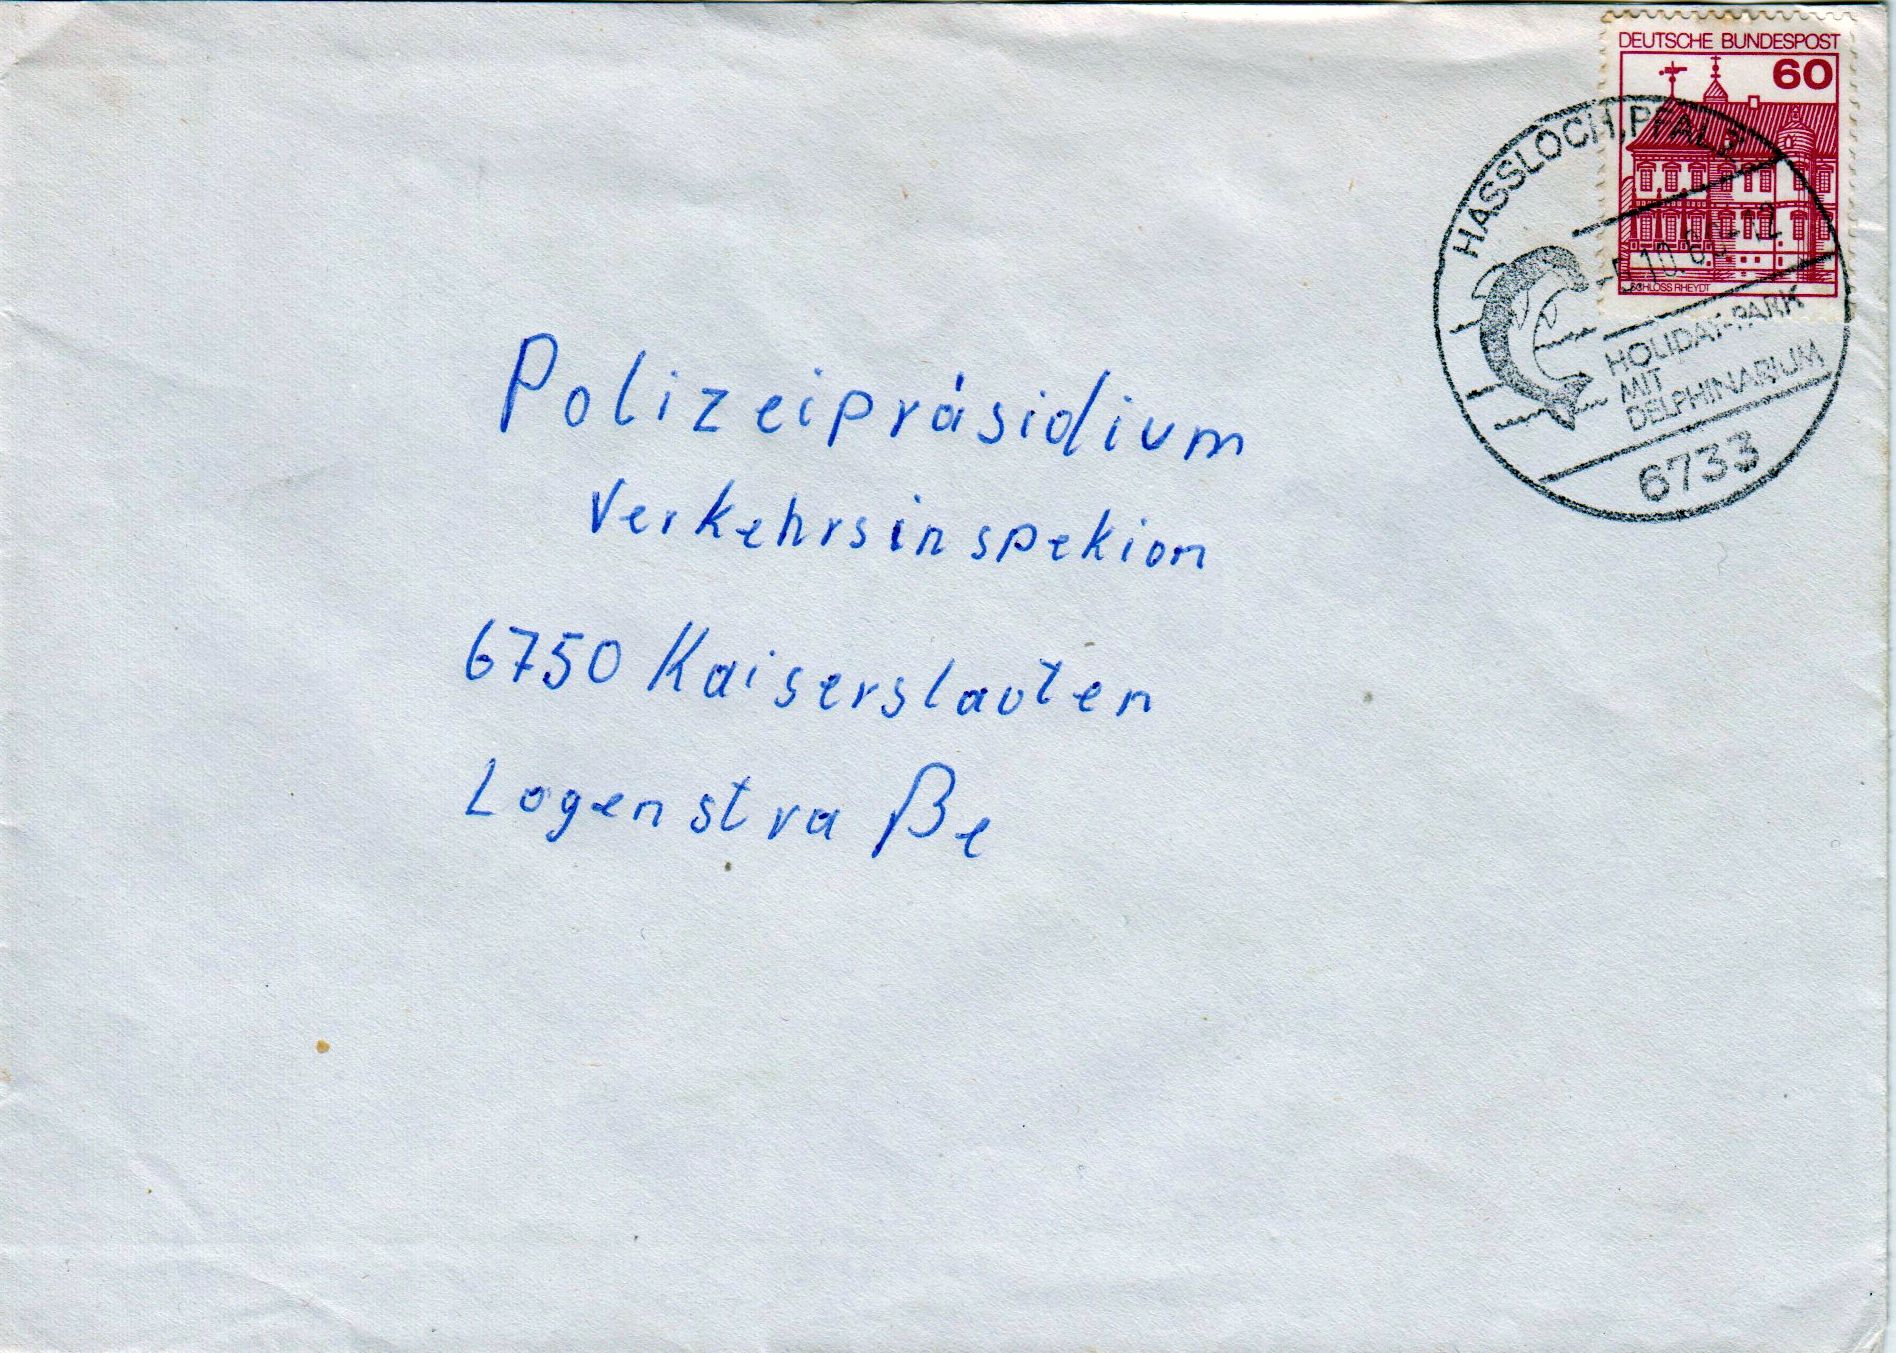 DEUTSCHE BUNDESPOST
60
SCHLOSS RHEYDT
HASSLOCH, PFALZ
HOLIDAY-PARK
MIT
DELPHINARIUM
6733
Polizeipräsidium
Verkehrsinspekion
6750 Kaiserslauten
Logenstraße